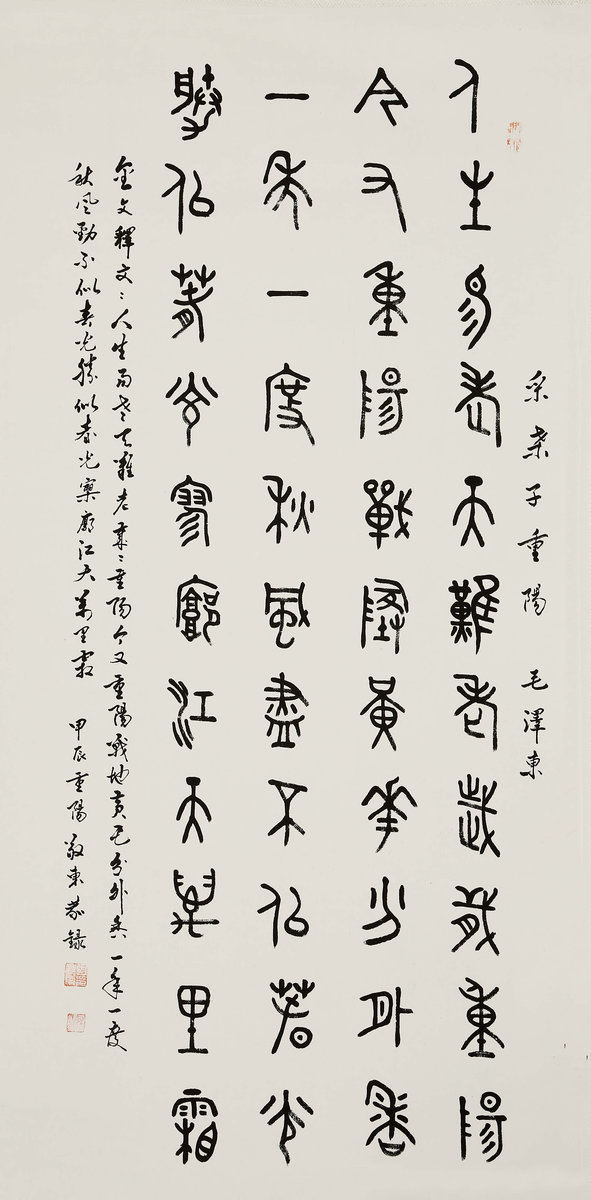 采桑子重陽 毛澤東
人生易老天難老歲歲重陽
今又重陽戰地黃華分外香
一年一度秋風盡不似春光
勝似春光寥廓江天萬里霜
金文釋文：人生易老天難老歲歲重陽今又重陽戰地黃花分外香一年一度
秋風勁不似春光勝似春光寥廓江天萬里霜 甲辰重陽 東恭録